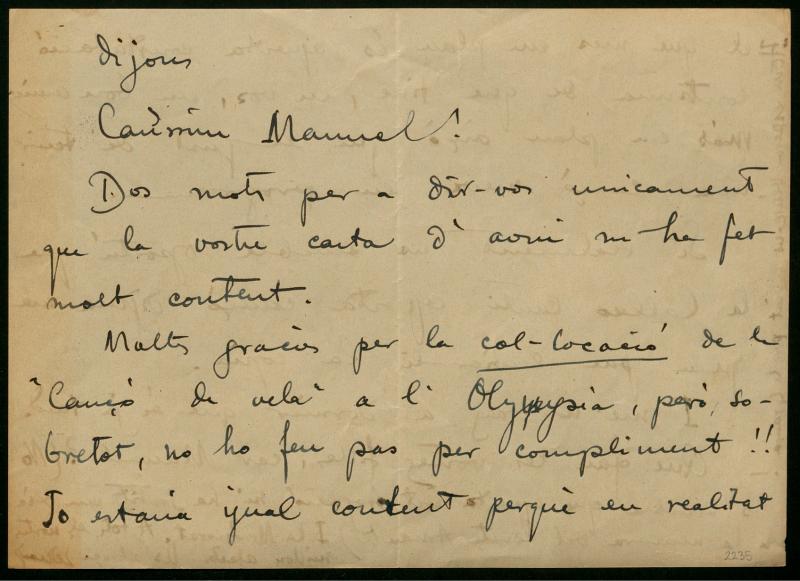 dijous
Caríssim Manuel!
Dos mots per a dir-vos unicament
que la vostre carta d'avui m-ha fet
molt content.
Moltes gracies per la col-locació de la
"Cançó de vela" a l' Olympsia, però, so-
bretot, no ho feu pas per compliment!!
Jo estaria igual content perquè en realitat
2235